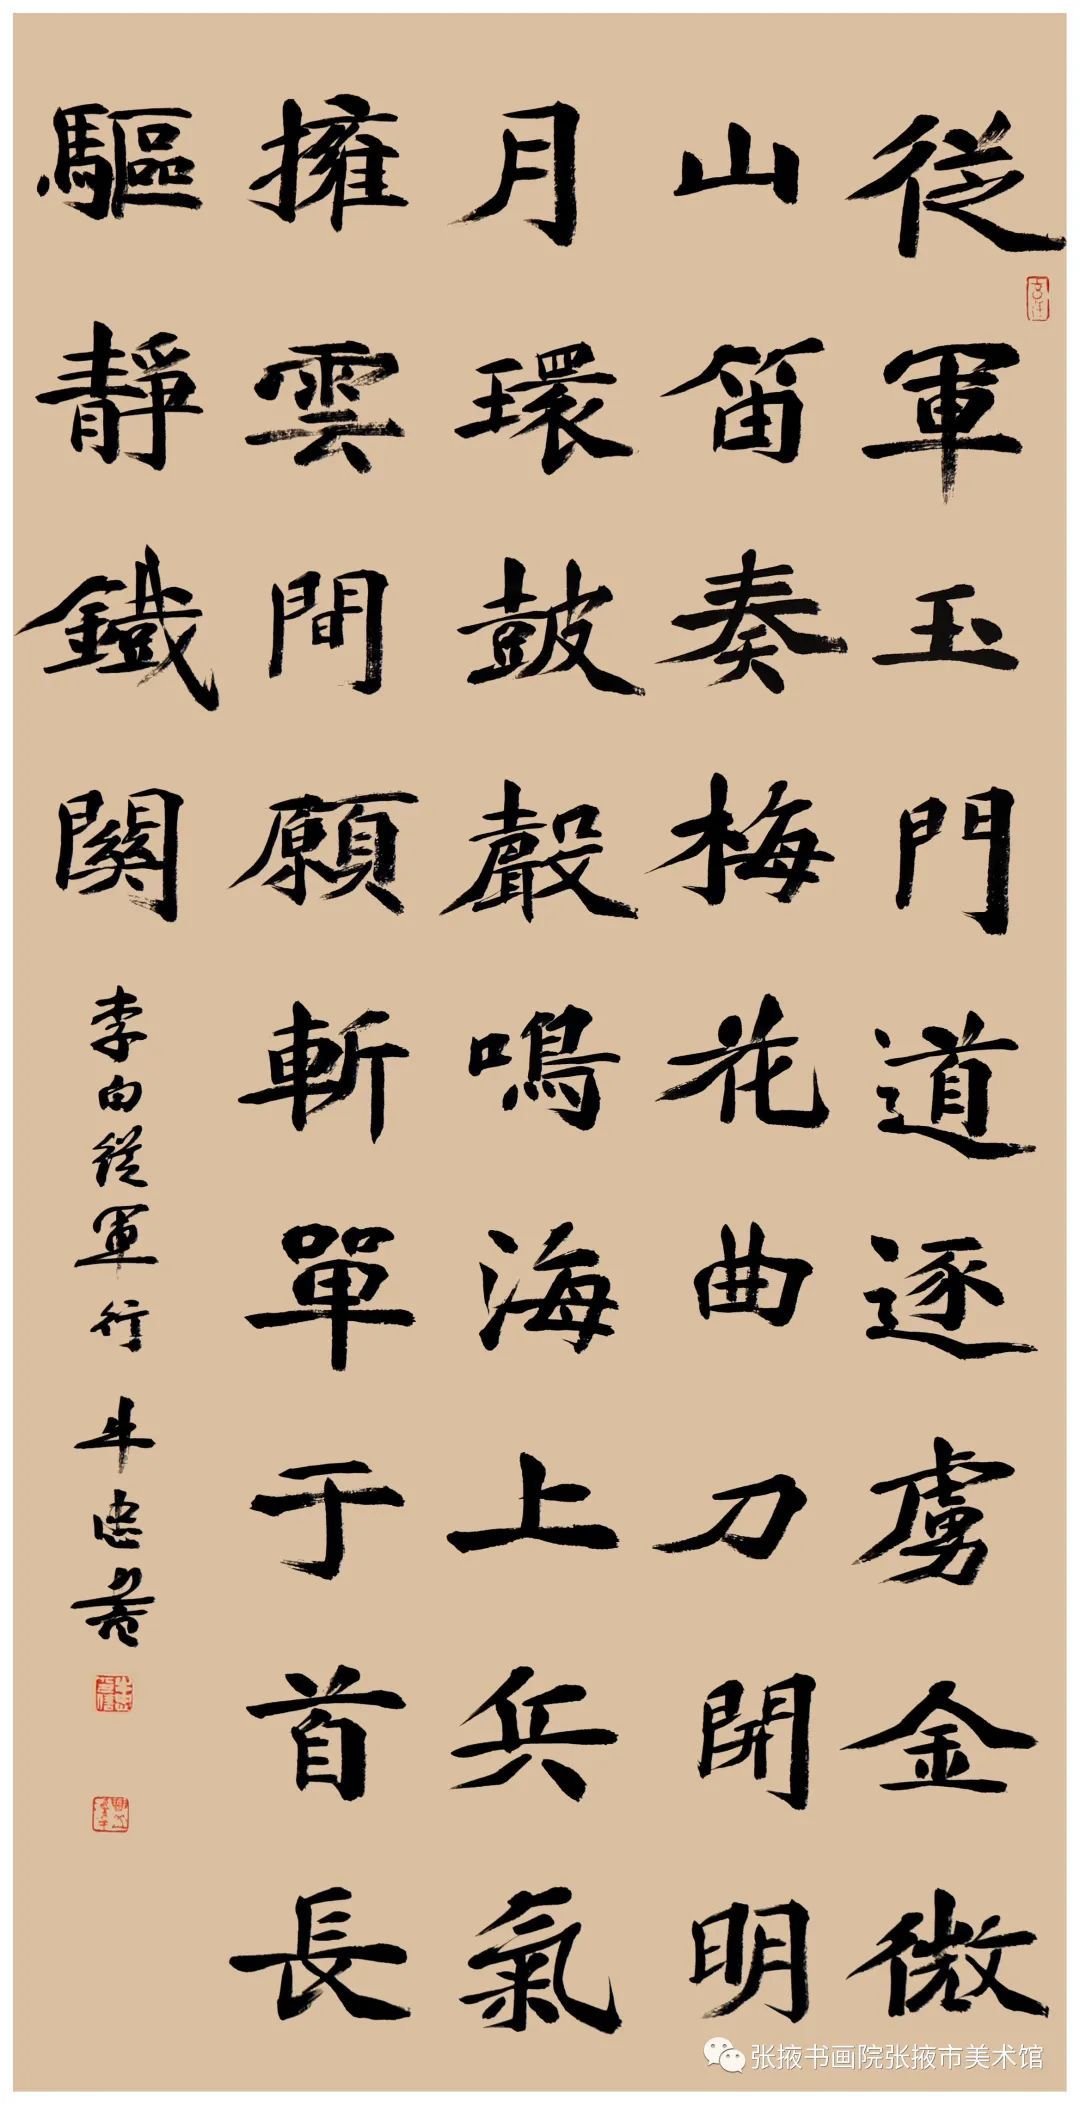 從軍玉門道逐虜金微
山笛奏梅花曲刀開明
月環鼓聲鳴海上兵氣
擁雲間願斬單于首長
驅靜鐵關
李白從軍行 牛忠書
张掖书画院张掖市美术馆